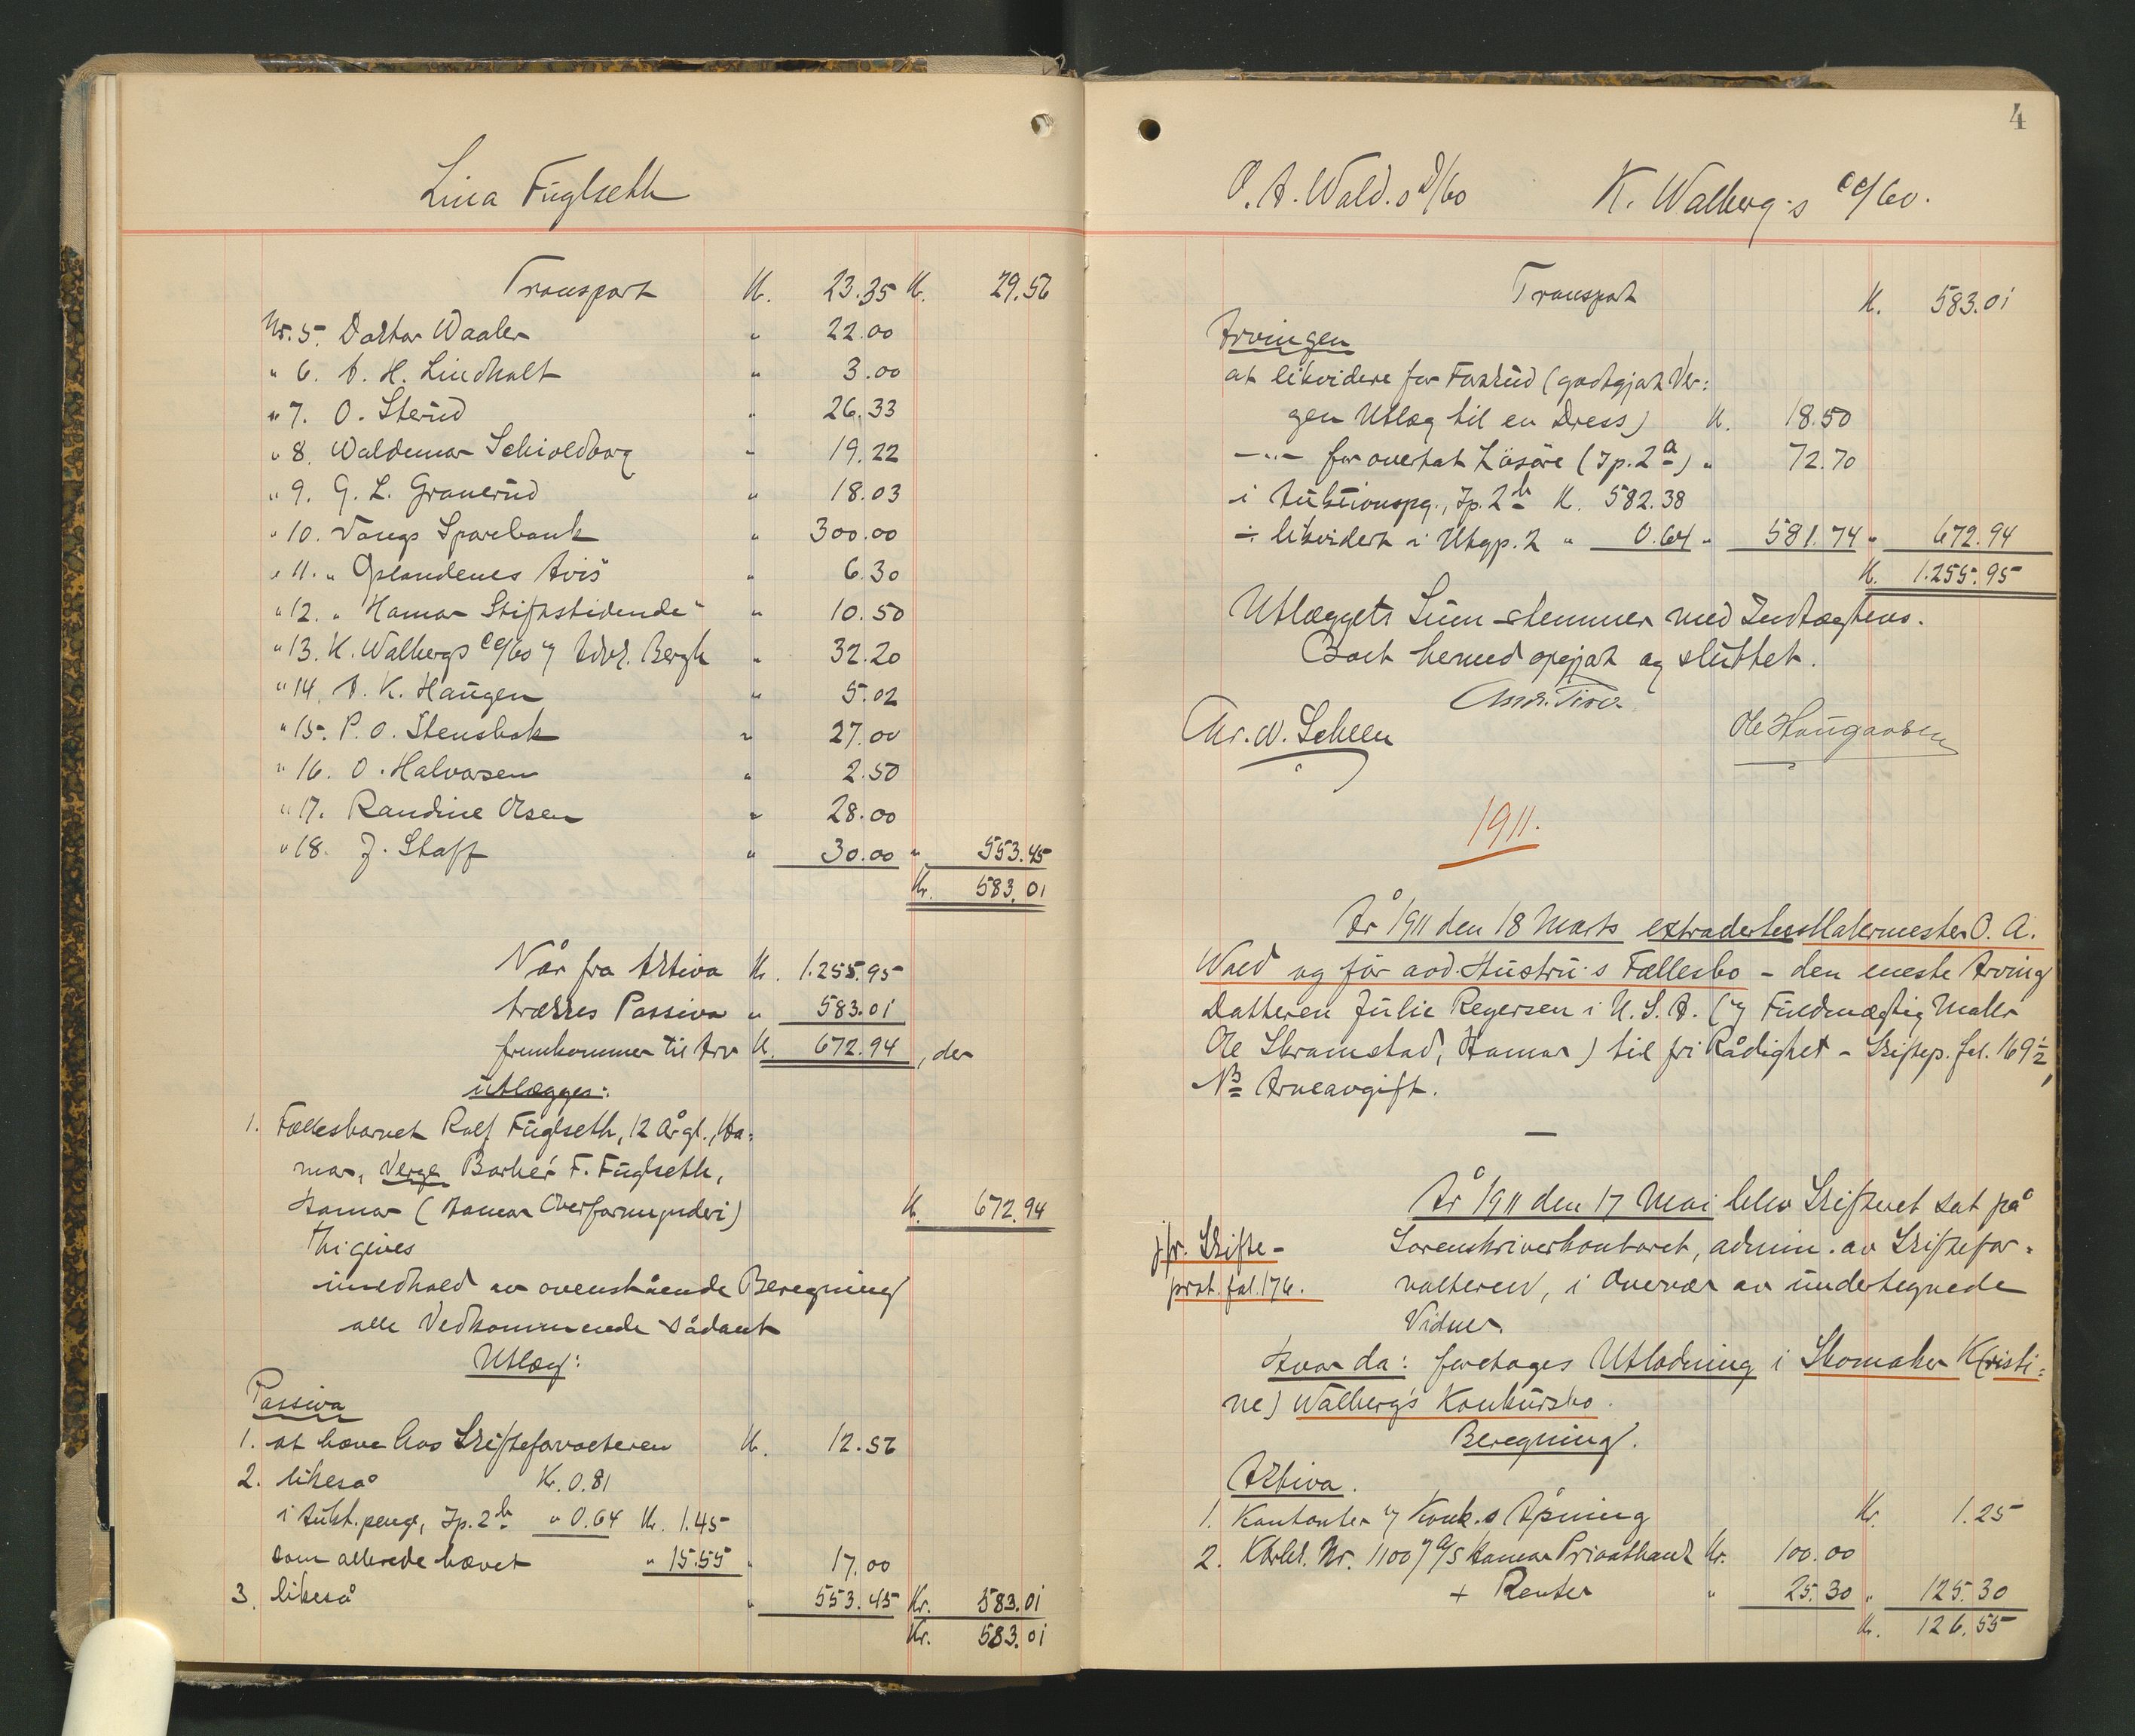 Lina Fuglseth
Transport Kr. 23.35 Kr. 29.56
Nr. 5. Doktor Waaler " 22.00
" 6. A. H. Lindholt " 3.00
" 7. O. Sterud " 26.33
" 8. Waldemar Schioldborg " 19.22
" 9. G. L. Granerud " 18.03
" 10. Vangs Sparebank " 300.00
" 11. "Oplandenes Avis" " 6.30
" 12. "Hamar Stiftstidende" " 10.50
" 13. K. Walbergs cc/bo v/ Adv. Bergh " 32.20
" 14. A. K. Haugen " 5.02
" 15. P. O. Stensbak " 27.00
" 16. O. Halvorsen " 2.50
" 17. Randine Olsen " 28.00
" 18. J. Staff " 30.00 " 553.45
Kr. 583.01
Når fra Aktiva Kr. 1.255.95
trækkes Passiva " 583.01
fremkommer til Arv Kr. 672.94, der
utlægges:
1. Fællesbarnet Rolf Fuglseth, 12 År gl., Ha=
mar, Verge Barber F. Fuglseth,
Hamar (Hamar Overformynderi) Kr. 672.94
Thi gives
i medhold av ovenstående Beregning
alle Vedkommende sådant
Utlæg:
Passiva
1. at hæve hos Skifteforvalteren Kr. 12.56
2. likeså Kr. 0.81
i Aukt.penge, Ip. 2b " 0.64 Kr. 1.45
som allerede hævet " 15.55 " 17.00
3. likeså " 553.45 Kr. 583.01
Kr. 583.01
4
O. A. Wald.s D/bo K. Walberg's cc/bo.
Transport Kr. 583.01
Arvingen
at likvidere for Forskud (godtgjort Ver=
gen Utlæg til en Dress) Kr. 18.50
—"— for overtat Løsøre (Ip. 2a) " 72.70
i Auktionspg., Ip. 2b Kr. 582.38
÷ likvidert i Utgp. 2 " 0.64 " 581.74 " 672.94
Kr. 1.255.95
Utlæggets Sum stemmer med Indtægtens.
Boet hermed opgjort og sluttet.
Chr. W. Scheen
Ole Haugaasen
1911.
År 1911 den 18 Marts extradertes Malermester O. A.
Wald og før avd. Hustru's Fællesbo – den eneste Arving
Datteren Julie Regersen i U. S. A. (v/ Fuldmægtig Maler
Ole Skramstad, Hamar) til fri Rådighet – Skiftep. fol. 169½,
NB Arveavgift.
—
År 1911 den 17 Mai blev Skifteret sat på
jfr. Skifte-
prot. fol. 176.
Sorenskriverkontoret, admin. av Skiftefor=
valteren, i Overvær av undertegnede
Vidner.
Hvor da: foretages Utlodning i Skomaker K(risti=
ne) Walberg's Konkursbo.
Beregning.
Aktiva.
1. Kontanter v/ Konk.s Åpning Kr. 1.25
2. Kbbl. Nr. 1100 v/ A/S Hamar Privatbank Kr. 100.00
+ Renter " 25.30 " 125.30
Kr. 126.55